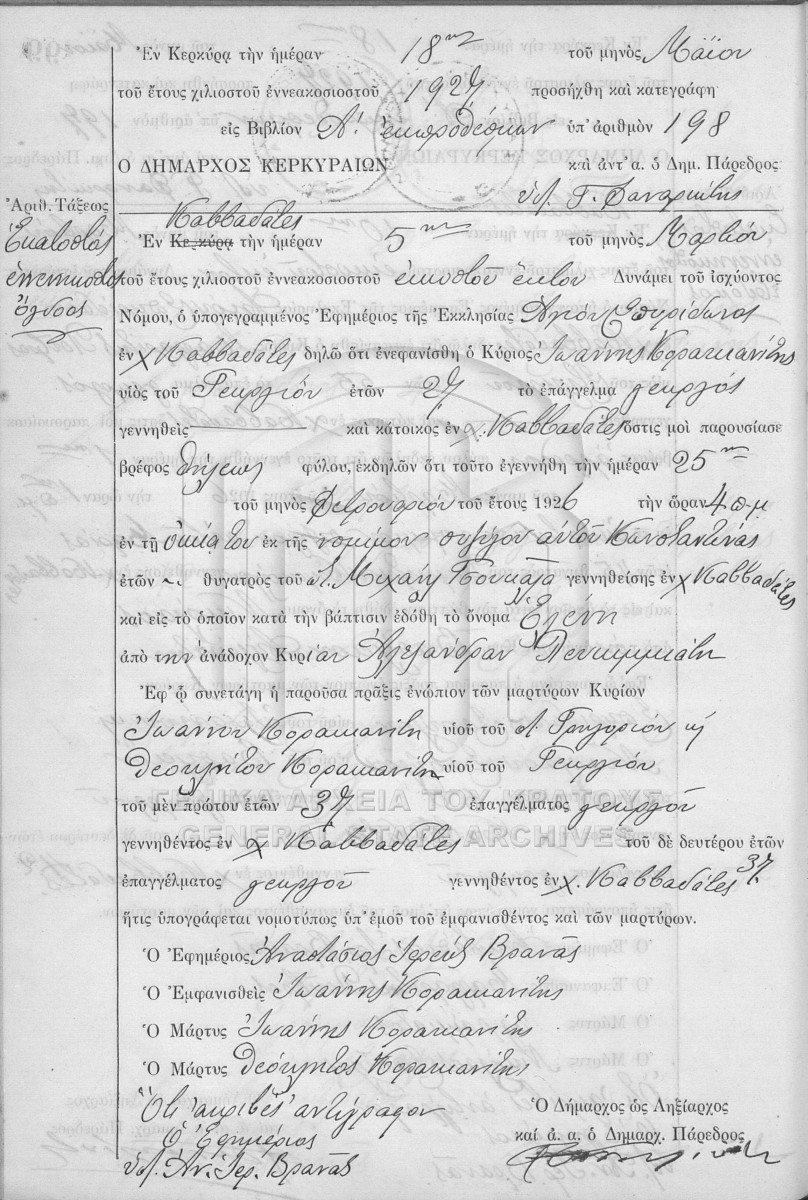 Ἐν Κερκύρᾳ τὴν ἡμέραν 18ην τοῦ μηνὸς Μαΐου
τοῦ ἔτους χιλιοστοῦ ἐννεακοσιοστοῦ 1927 προσήχθη καὶ κατεγράφη
εἰς Βιβλίον Α΄. ἐκπροθέσμων ὑπ' ἀριθμὸν 198
Ο ΔΗΜΑΡΧΟΣ ΚΕΡΚΥΡΑΙΩΝ καὶ ἀντ' α. ὁ Δημ. Πάρεδρος
Γ. Φαναριώτης
Ἀριθ. Τάξεως
Ἑκατοστὸς
ἐννενηκοστὸς
ὄγδοος
Καββαδάτες
Ἐν Κερκύρᾳ τὴν ἡμέραν 5ην τοῦ μηνὸς Μαρτίου
τοῦ ἔτους χιλιοστοῦ ἐννεακοσιοστοῦ εἰκοστοῦ ἕκτου Δυνάμει τοῦ ἰσχύοντος
Νόμου, ὁ ὑπογεγραμμένος Ἐφημέριος τῆς Ἐκκλησίας Ἁγίου Σπυρίδωνος
ἐν χ. Καββαδάτες δηλῶ ὅτι ἐνεφανίσθη ὁ Κύριος Ἰωάννης Κορακιανίτης
υἱὸς τοῦ Γεωργίου ἐτῶν 27 τὸ ἐπάγγελμα γεωργός
γεννηθεὶς καὶ κάτοικος ἐν χ. Καββαδάτες ὅστις μοὶ παρουσίασε
βρέφος θήλεως φύλου, ἐκδηλῶν ὅτι τοῦτο ἐγεννήθη τὴν ἡμέραν 25ην
τοῦ μηνὸς Φεβρουαρίου τοῦ ἔτους 1926 τὴν ὥραν 4 π.μ.
ἐν τῇ οἰκίᾳ του ἐκ τῆς νομίμου συζύγου αὐτοῦ Κωνσταντίνας
ἐτῶν ~ θυγατρὸς τοῦ Μιχαὴλ Τσουκαλᾶ γεννηθείσης ἐν χ. Καββαδάτες
καὶ εἰς τὸ ὁποῖον κατὰ τὴν βάπτισιν ἐδόθη τὸ ὄνομα Ἑλένη
ἀπὸ τὴν ἀνάδοχον Κυρίαν Ἀλεξάνδραν
Ἐφ' ᾧ συνετάγη ἡ παροῦσα πρᾶξις ἐνώπιον τῶν μαρτύρων Κυρίων
Ἰωάννου Κορακιανίτη υἱοῦ τοῦ Γρηγορίου κ
Θεοκλήτου Κορακιανίτη υἱοῦ τοῦ Γεωργίου
τοῦ μὲν πρώτου ἐτῶν 37 ἐπαγγέλματος γεωργοῦ
ΓΕΝΙΚΑ ΑΡΧΕΙΑ ΤΟΥ ΚΡΑΤΟΥΣ
GENERAL STATE ARCHIVES
γεννηθέντος ἐν χ. Καββαδάτες τοῦ δὲ δευτέρου ἐτῶν 37.
ἐπαγγέλματος γεωργοῦ γεννηθέντος ἐν χ. Καββαδάτες
ἥτις ὑπογράφεται νομοτύπως ὑπ' ἐμοῦ τοῦ ἐμφανισθέντος καὶ τῶν μαρτύρων.
Ὁ Ἐφημέριος Ἀναστάσιος Ἱερεὺς Βρανᾶς
Ὁ Ἐμφανισθεὶς Ἰωάννης Κορακιανίτης
Ὁ Μάρτυς Ἰωάννης Κορακιανίτης
Ὁ Μάρτυς Θεόκλητος Κορακιανίτης
Ὅτι ἀκριβὲς ἀντίγραφον
Ὁ Ἐφημέριος
Ἀν. Ἱερ. Βρανᾶς
Ὁ Δήμαρχος ὡς Ληξίαρχος
καὶ ἀ. α. ὁ Δημαρχ. Πάρεδρος